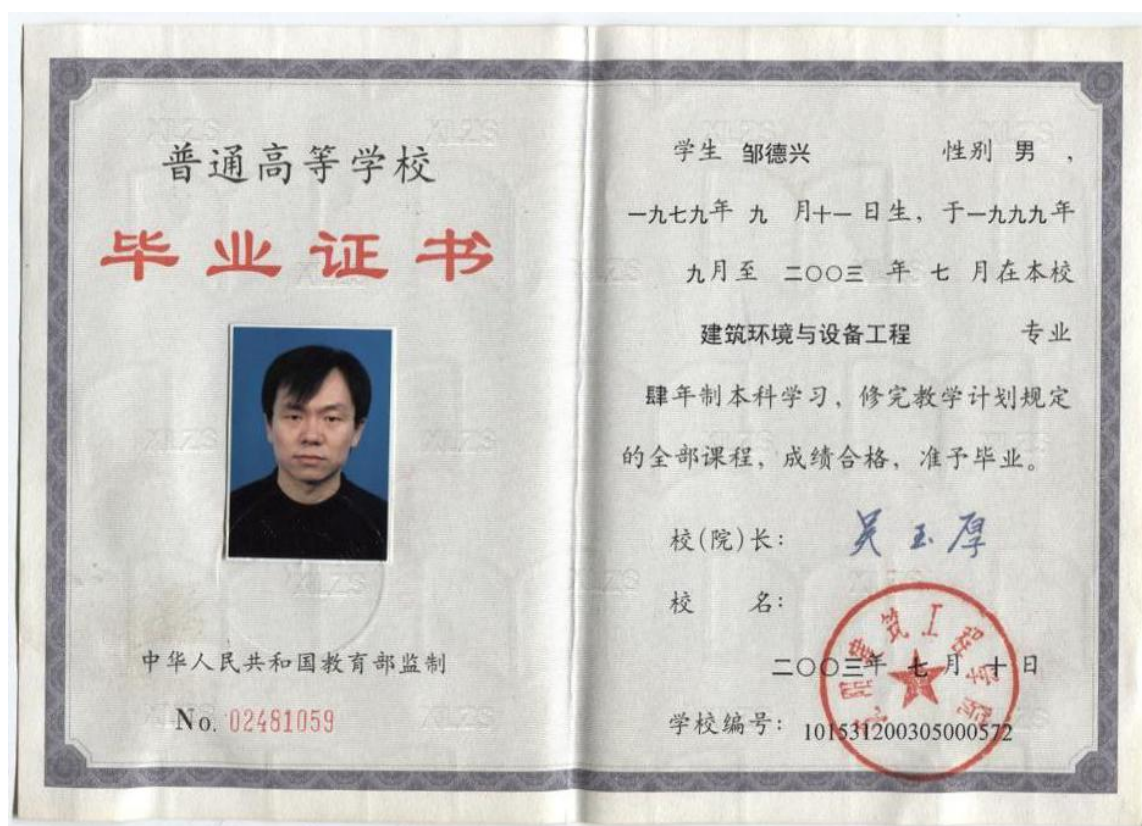 普通高等学校
毕业证书
中华人民共和国教育部监制
No. 02481059
学生 邹德兴 性别 男 ,
一九七九年 九 月十一 日生, 于一九九九年
九月至 二〇〇三 年 七 月在本校
建筑环境与设备工程 专业
肆年制本科学习, 修完教学计划规定
的全部课程, 成绩合格, 准予毕业。
校(院)长: 吴玉厚
校 名:
沈阳建筑工程学院
二〇〇三年 七 月 十 日
学校编号: 101531200305000572